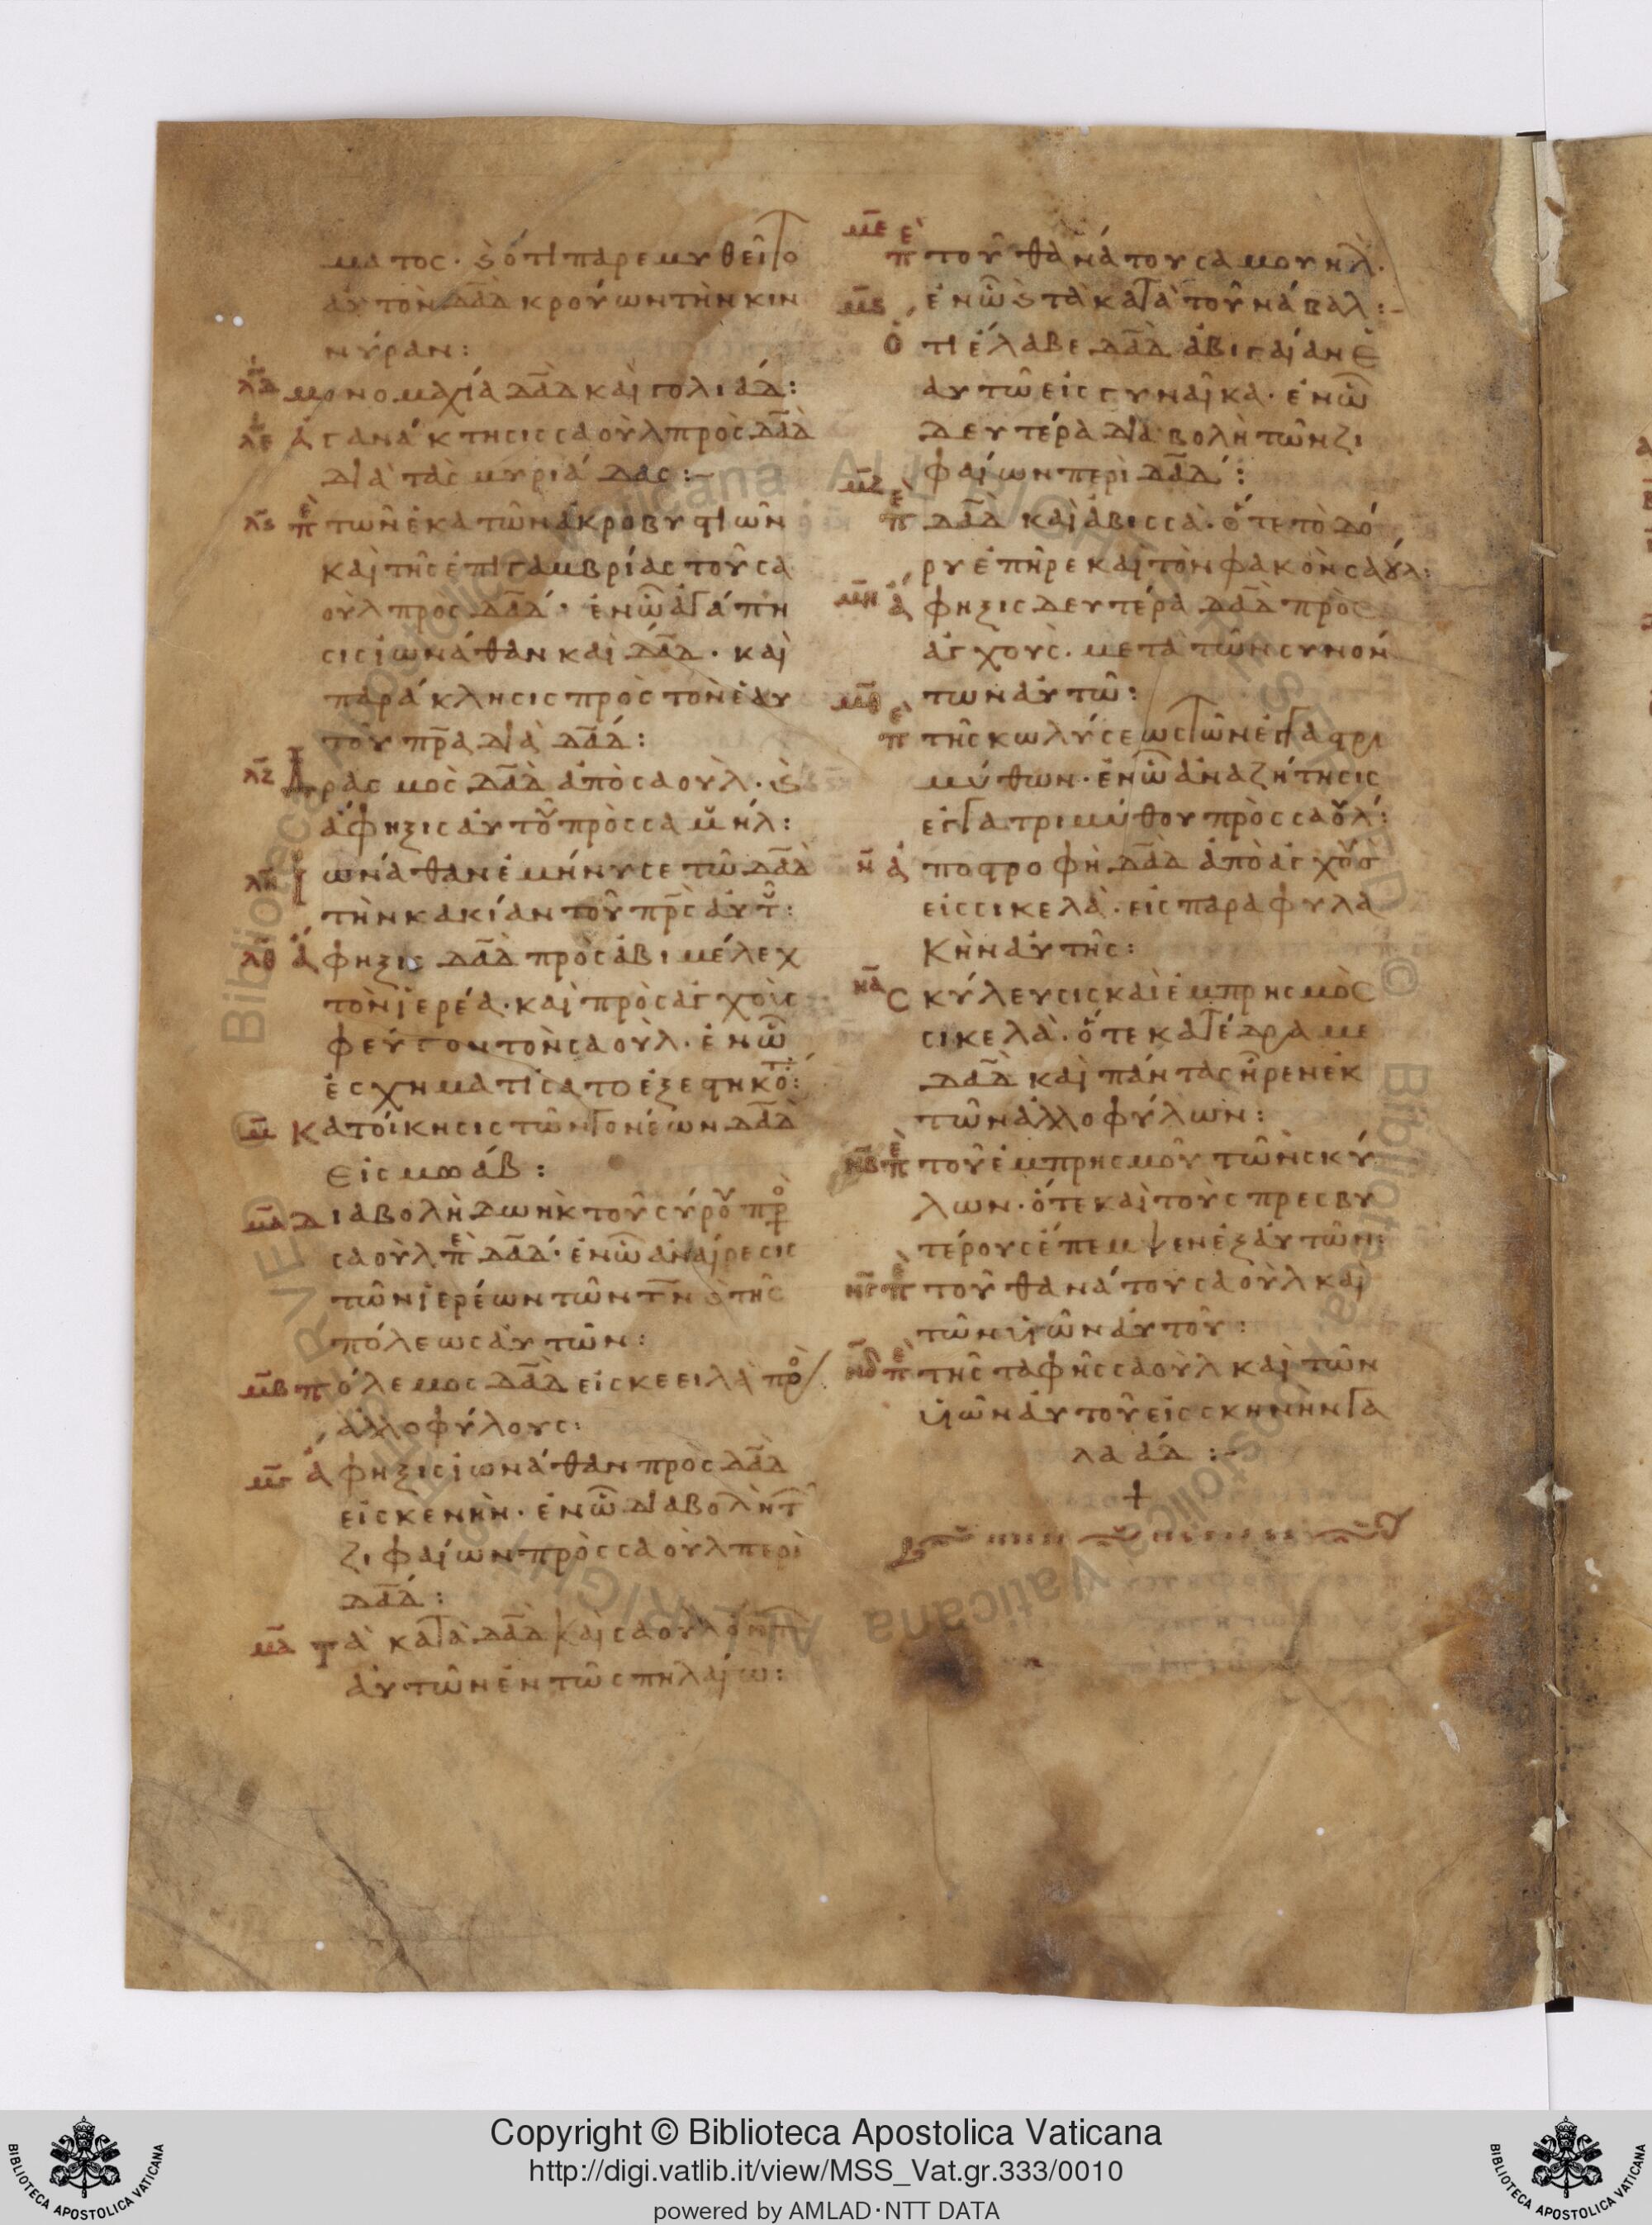 ματος· ϗ ὅτι παρεμυθεῖτο
αὐτὸν δα̅δ κρούων τὴν κιν
νύραν:
λδ μονομαχία δα̅δ καὶ γολιάδ:
λε ἀγανάκτησις σαοὺλ πρὸς δα̅δ
διὰ τὰς μυριάδας:~
λϛ πε τῶν ἑκατὸν ἀκροβυστιῶν
καὶ τῆς ἐπιγαμβρίας τοῦ σα
οὺλ προς δα̅δ· ἐν ὧ ἀγάπη
σις ἰωνάθαν καὶ δα̅δ· καὶ
παράκλησις πρὸς τὸν ἑαυ
τοῦ πρ̅α διὰ δα̅δ:
λζ Δρασμὸς δα̅δ ἀπὸ σαούλ· ϗ
ἄφηξις αὐτοῦ πρὸς σαμουήλ:
λη ἰωνάθαν ἐμήνυσε τῶ δα̅δ
τὴν κακίαν τοῦ πρ̅ς αὐτ:
λθ ἄφηξις δα̅δ πρὸς ἀβιμέλεχ
τὸν ἱερέα· καὶ πρὸς ἀγχοὺς
φεύγων τὸν σαούλ· ἐν ὧ
ἐσχηματίσατο ἐξεστηκότ:
μ κατοίκησις τῶν γονέων δα̅δ
εἰς μωάβ:
μα διαβολὴ δωὴκ τοῦ σύρου πρ
σαοὺλ πε δα̅δ· ἐν ὧ ἀναίρεσις
τῶν ἱερέων τῶν τ̅ν ϗ τῆς
πόλεως αὐτῶν:
μβ πόλεμος δα̅δ εἰς κεειλὰ προ
ἀλλοφύλους:
μγ ἄφηξις ἰωνάθαν πρὸς δα̅δ
εἰς κενὴν· ἐν ὧ διαβολὴ τ
ζιφαίων πρὸς σαοὺλ περὶ
δα̅δ:
μδ τὰ κατὰ δα̅δ καὶ σαοὺλ
αὐτῶν ἐν τῶ σπηλαίω:
με πε τοῦ θανάτου σαμουήλ·
μϛ ἐν ὧ ϗ τὰ κατὰ τοῦ νάβαλ:~
ὅτι ἔλαβε δα̅δ ἀβιγαίαν ἑ
αυτῶ εἰς γυναῖκα· ἐν ὧ
δευτέρα διαβολὴ τῶν ζι
φαίων περὶ δα̅δ:
μζ πε δα̅δ καὶ ἀβισσά· ὅτε τὸ δό
ρυ ἐπῆρε καὶ τὸν φακὸν σαούλ:
μη ἄφηξις δευτέρα δα̅δ πρὸς
ἀγχούς· μετὰ τῶν συνόν
των αὐτῶ:
μθ πε τῆς κωλύσεως τῶν ἐγγαστρι
μύθων· ἐν ὧ ἀναζήτησις
ἐγγατριμύθου πρὸς σαούλ:
ν ἀποστροφὴ δα̅δ ἀπὸ ἀγχοῦς
εἰς σικελά· εἰς παραφυλα
κὴν αὐτῆς:
να Σκύλευσις καὶ ἐμπρησμὸς
σικελά· ὅτε κατέδραμε
δα̅δ καὶ πάντας ἦρεν ἐκ
τῶν ἀλλοφύλων:
νβ πε τοῦ ἐμπρησμοῦ τῶν σκύ
λων· ὅτε καὶ τοὺς πρεσβυ
τέρους ἔπεμψεν ἐξ αὐτῶν:
νγ πε τοῦ θανάτου σαοὺλ καὶ
τῶν υἱῶν αὐτοῦ:
νδ πε τῆς ταφῆς σαοὺλ καὶ τῶν
υἱῶν αὐτοῦ εἰς σκηνὴν γα
λαάδ:~
+
Copyright © Biblioteca Apostolica Vaticana
http://digi.vatlib.it/view/MSS_Vat.gr.333/0010
powered by AMLAD·NTT DATA
BIBLIOTECA APOSTOLICA VATICANA
BIBLIOTECA APOSTOLICA VATICANA